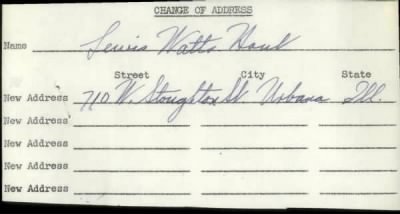 CHANGE OF ADDRESS
Name Lewis Watts Houk
Street City State
New Address 710 W. Stoughton St. Urbana Ill.
New Address
New Address
New Address
New Address